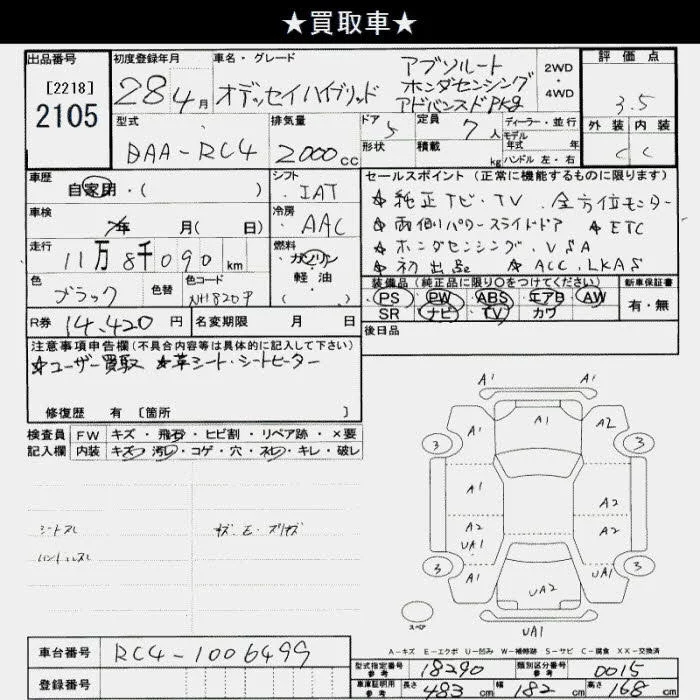 ★買取車★
出品番号
[2218]
2105
初度登録年月
28 4月
車名・グレード
オデッセイハイブリッド
アブソルート
ホンダセンシング
アドバンスドPKg
2WD
・
4WD
評価点
3.5
外装 内装
C C
型式
DAA-RC4
排気量
2000cc
ドア 5
形状
定員 7人
積載 kg
ディーラー・並行
モデル
年式 年
ハンドル 左・右
車歴
自家用・( )
シフト
IAT
車検
年 月( 日)
冷房
AAC
走行
11万8千090km
燃料
ガソリン
軽・油
( )
色
ブラック
色替
色コード
NH820P
R券 14,420円
名変期限 月 日
セールスポイント(正常に機能するものに限ります)
☆純正ナビ・TV. 全方位モニター
☆両側パワースライドドア ☆ETC
☆ホンダセンシング.VSA
☆初出品 ☆ACC.LKAS
装備品(純正品に限り○をつけてください)
PS PW ABS エアB AW
SR ナビ TV カワ
新車保証書
有・無
後日品
注意事項申告欄(不具合内容等は具体的に記入して下さい)
☆ユーザー買取 ☆革シート・シートヒーター
修復歴 有 [箇所 ]
検査員
記入欄
FW キズ・飛石・ヒビ割・リペア跡・×要
内装 キズ・汚れ・コゲ・穴・スレ・キレ・破レ
シートスレ
ハンドルスレ
A1 A1
A1 A1 A2
3 3
A1 A2
A2 A2
UA1
3 3
A1 UA2 UA1
UA1
スペア
A-キズ E-エクボ U-凹み W-補修跡 S-サビ C-腐食 XX-交換済
車台番号 RC4-1006499
登録番号
型式指定番号
参考
18290
類別区分番号
参考
0015
車庫証明用
参考
長さ 483cm 幅 182cm 高さ 168cm